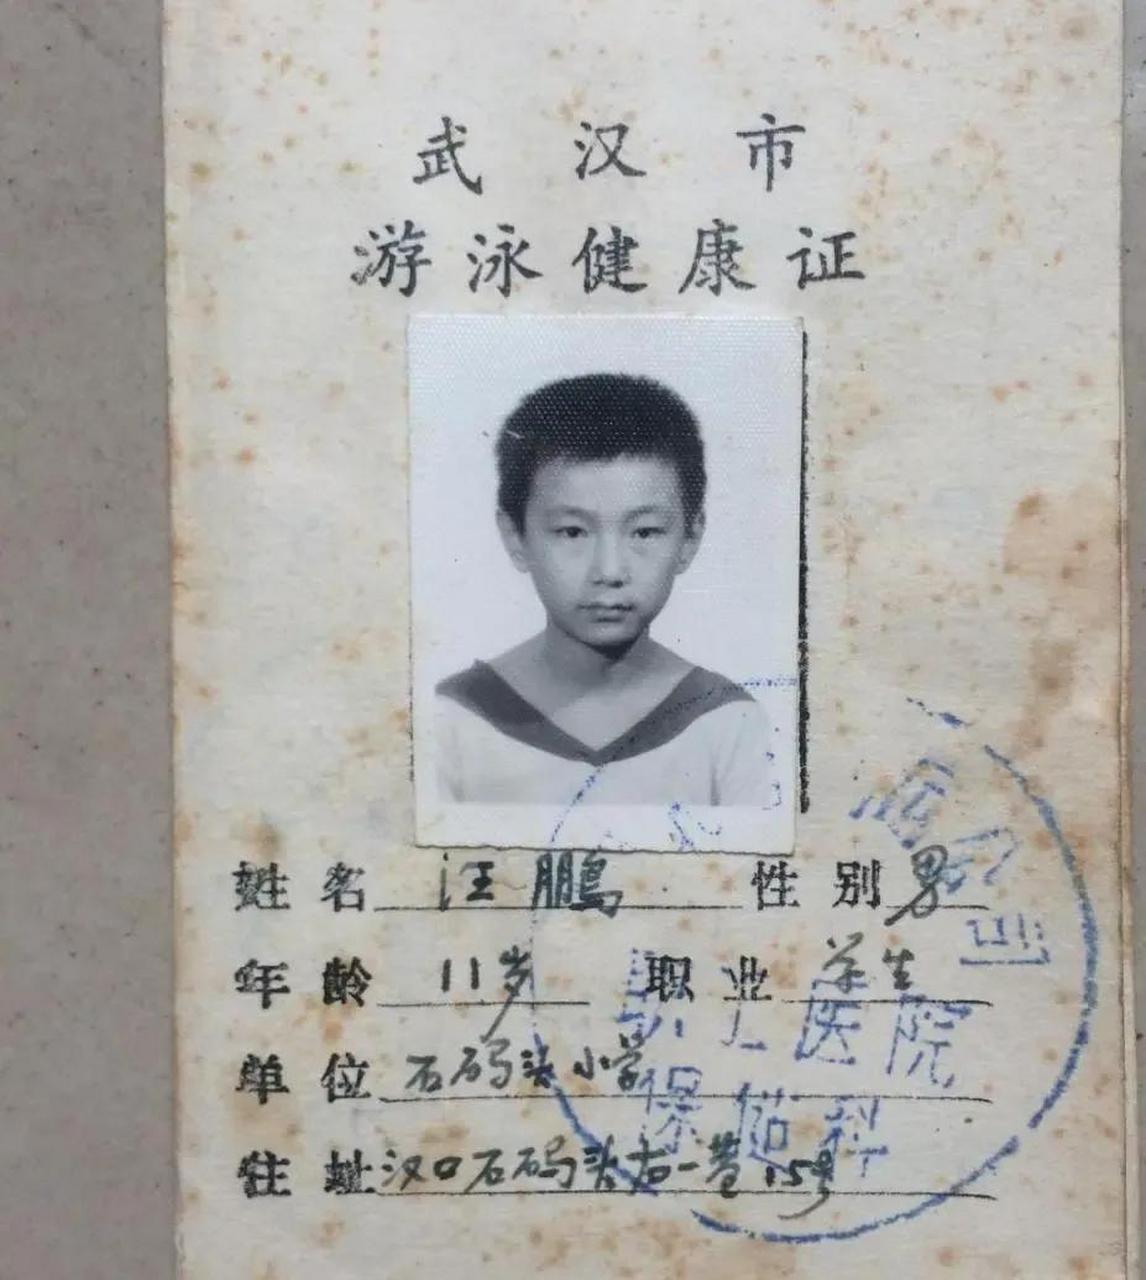 武汉市
游泳健康证
姓名 汪鹏 性别 男
年龄 11岁 职业 学生
单位 石码头小学
住址 汉口石码头右一巷15号
医院
保偿科